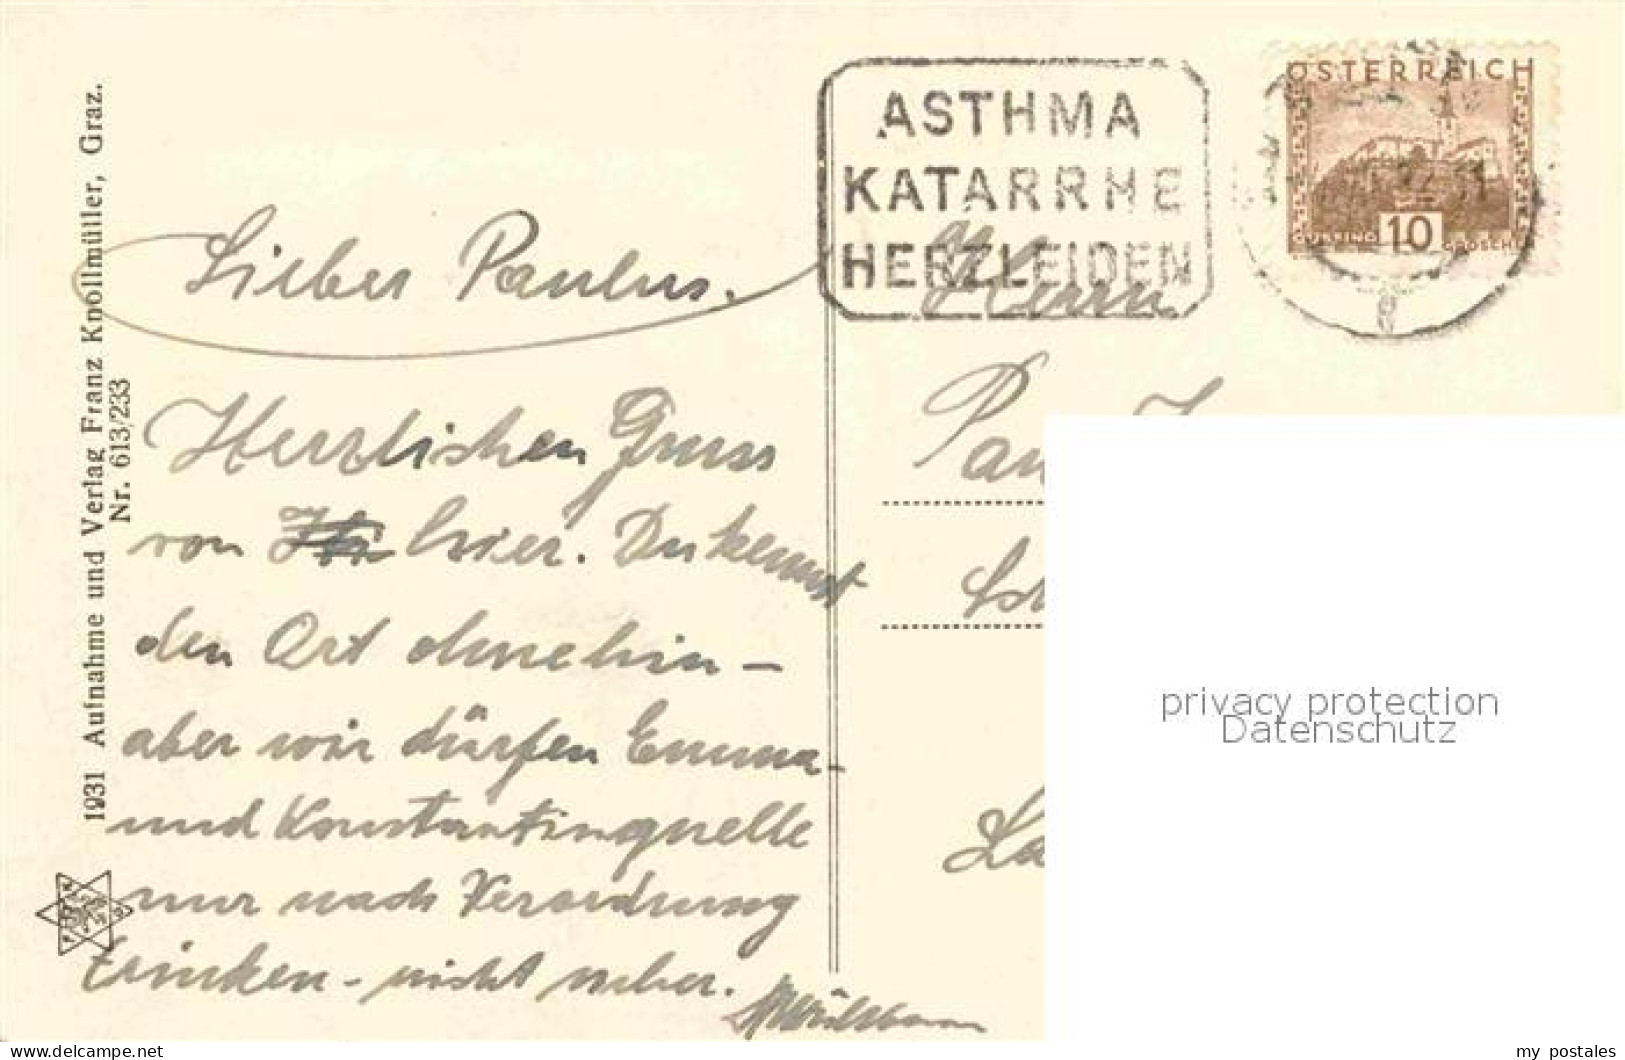 1931 Aufnahme und Verlag Franz Knollmüller, Graz.
Nr. 613/233
ASTHMA
KATARRHE
HERZLEIDEN
ÖSTERREICH
GÜSSING 10 GROSCHEN
Lieber Paulus.
Herzlichen Gruss
von hier. Du kennst
den Ort ohnehin –
aber wir dürfen Emma-
und Konstantinquelle
nur nach Verordnung
trinken – nicht
Herrn
privacy protection
Datenschutz
www.delcampe.net
my_postales